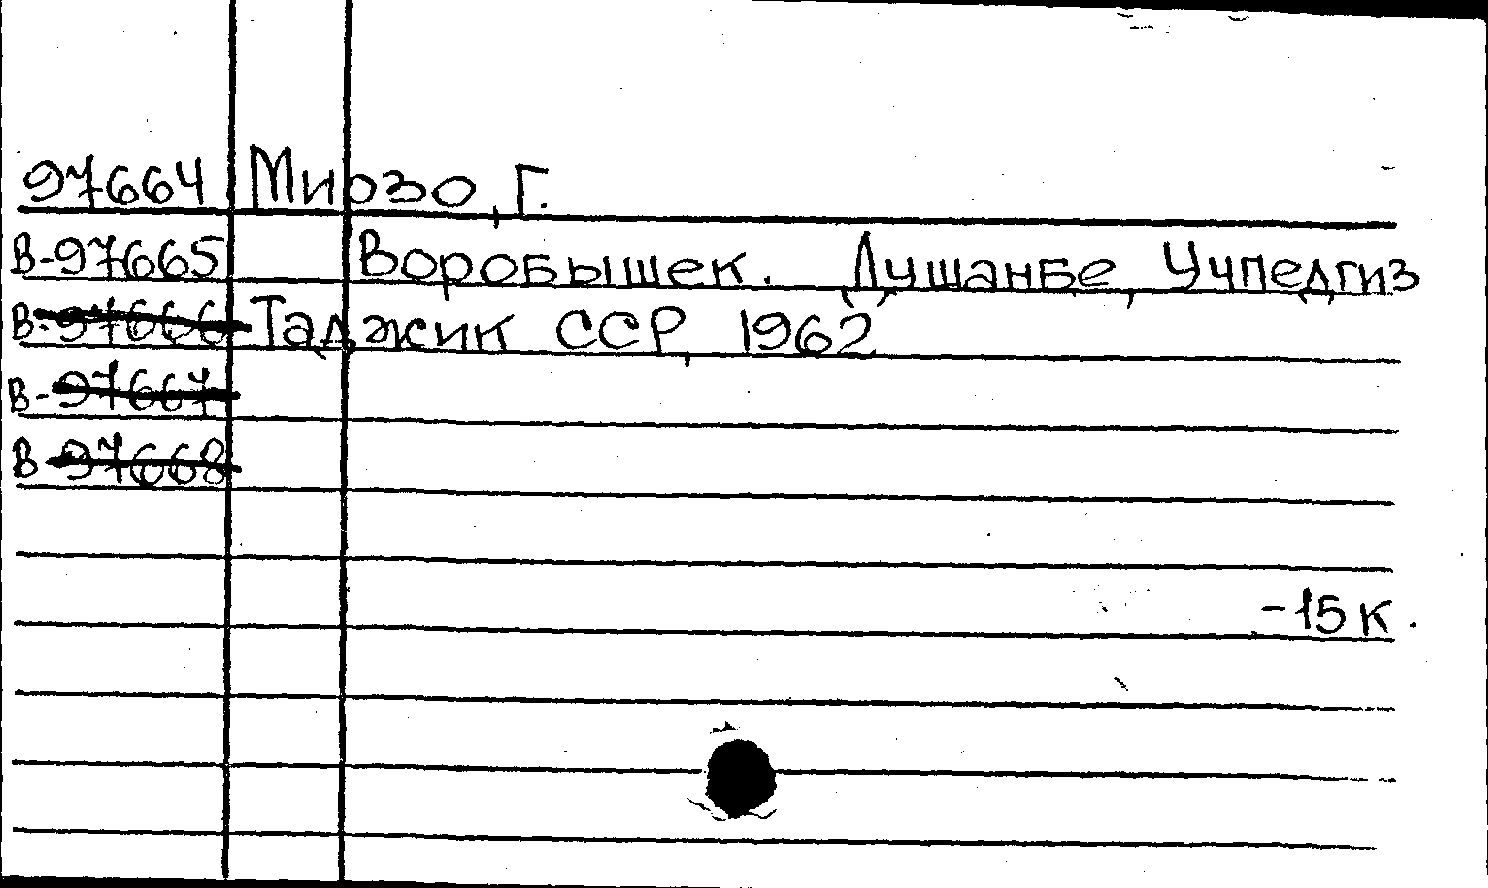 97664 Мирзо, Г.
В-97665 Воробышек. Душанбе, Учпедгиз
В-97666 Таджик ССР, 1962
В-97667
В-97668
-15к.